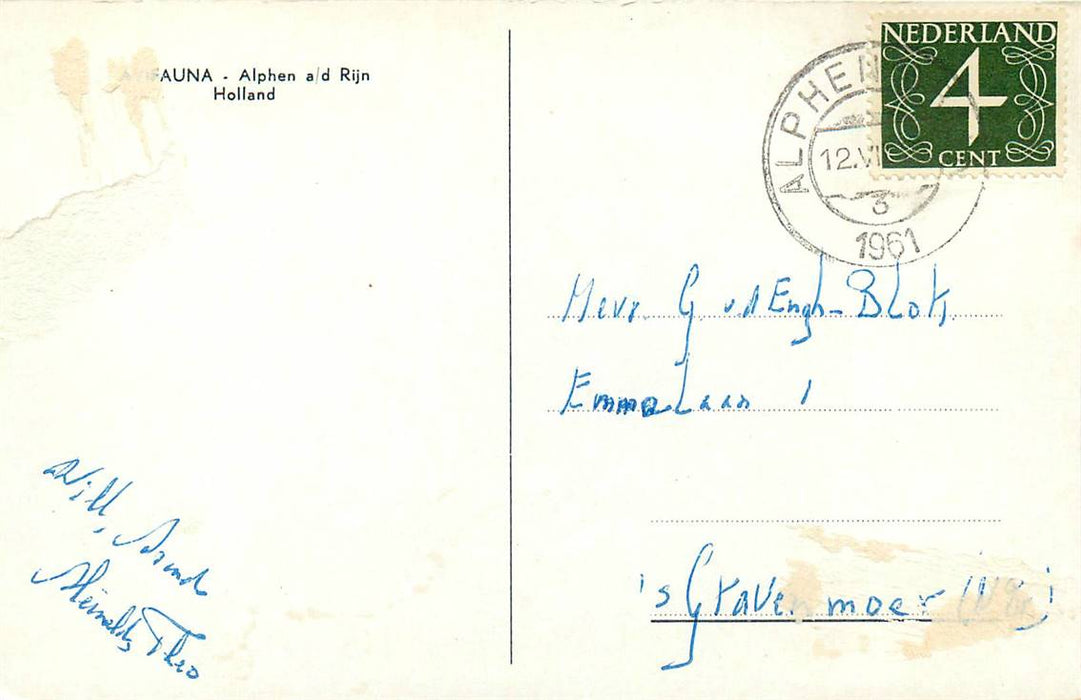 AVIFAUNA - Alphen a/d Rijn
Holland
NEDERLAND
4
CENT
ALPHEN
12.VI
3
1961
Mevr. G v.d Engh-Blok,
Emmalaan 1
's Gravenmoer
Will,
Theo